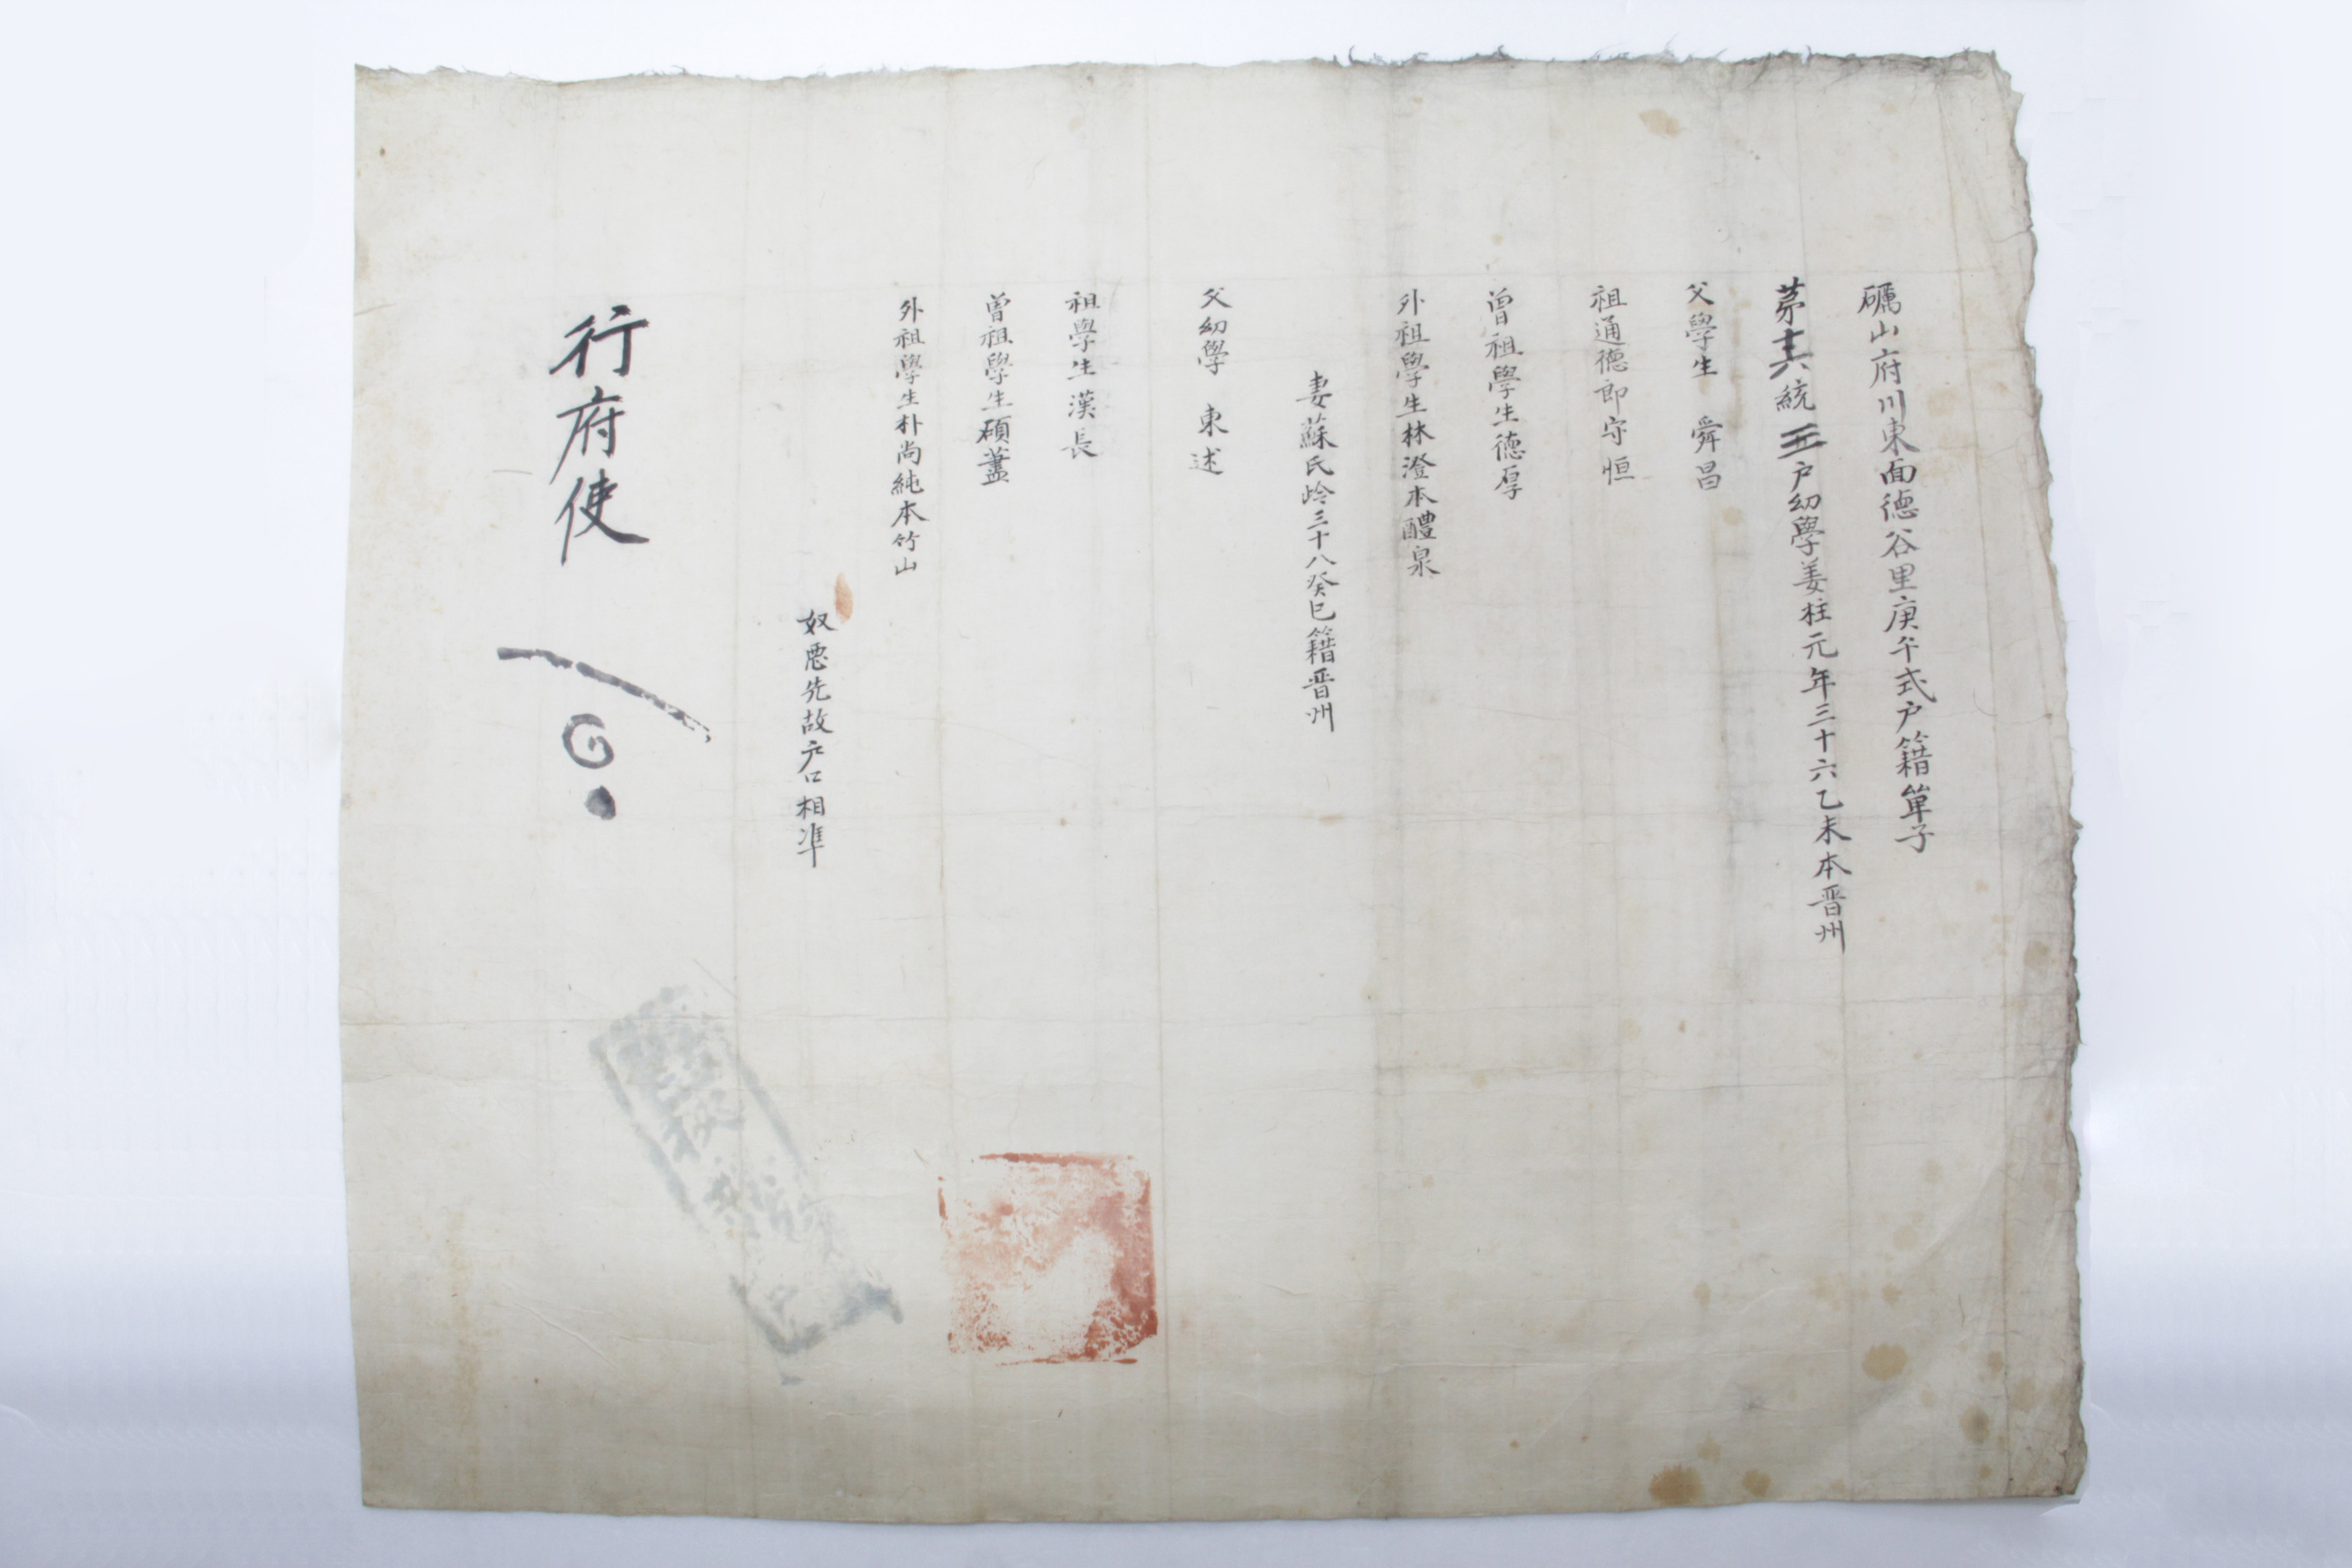 礪山府川東面德谷里庚午式户籍單子
苐十六統五户幼學姜柱元年三十六乙未本晋州
父學生 舜昌
祖通德郎守恒
曾祖學生德厚
外祖學生林澄本醴泉
妻蘇氏岭三十八癸巳籍晋州
父幼學 東述
祖學生漢長
曾祖學生碩藎
外祖學生朴尚純本竹山
奴悪先故户口相准
行府使